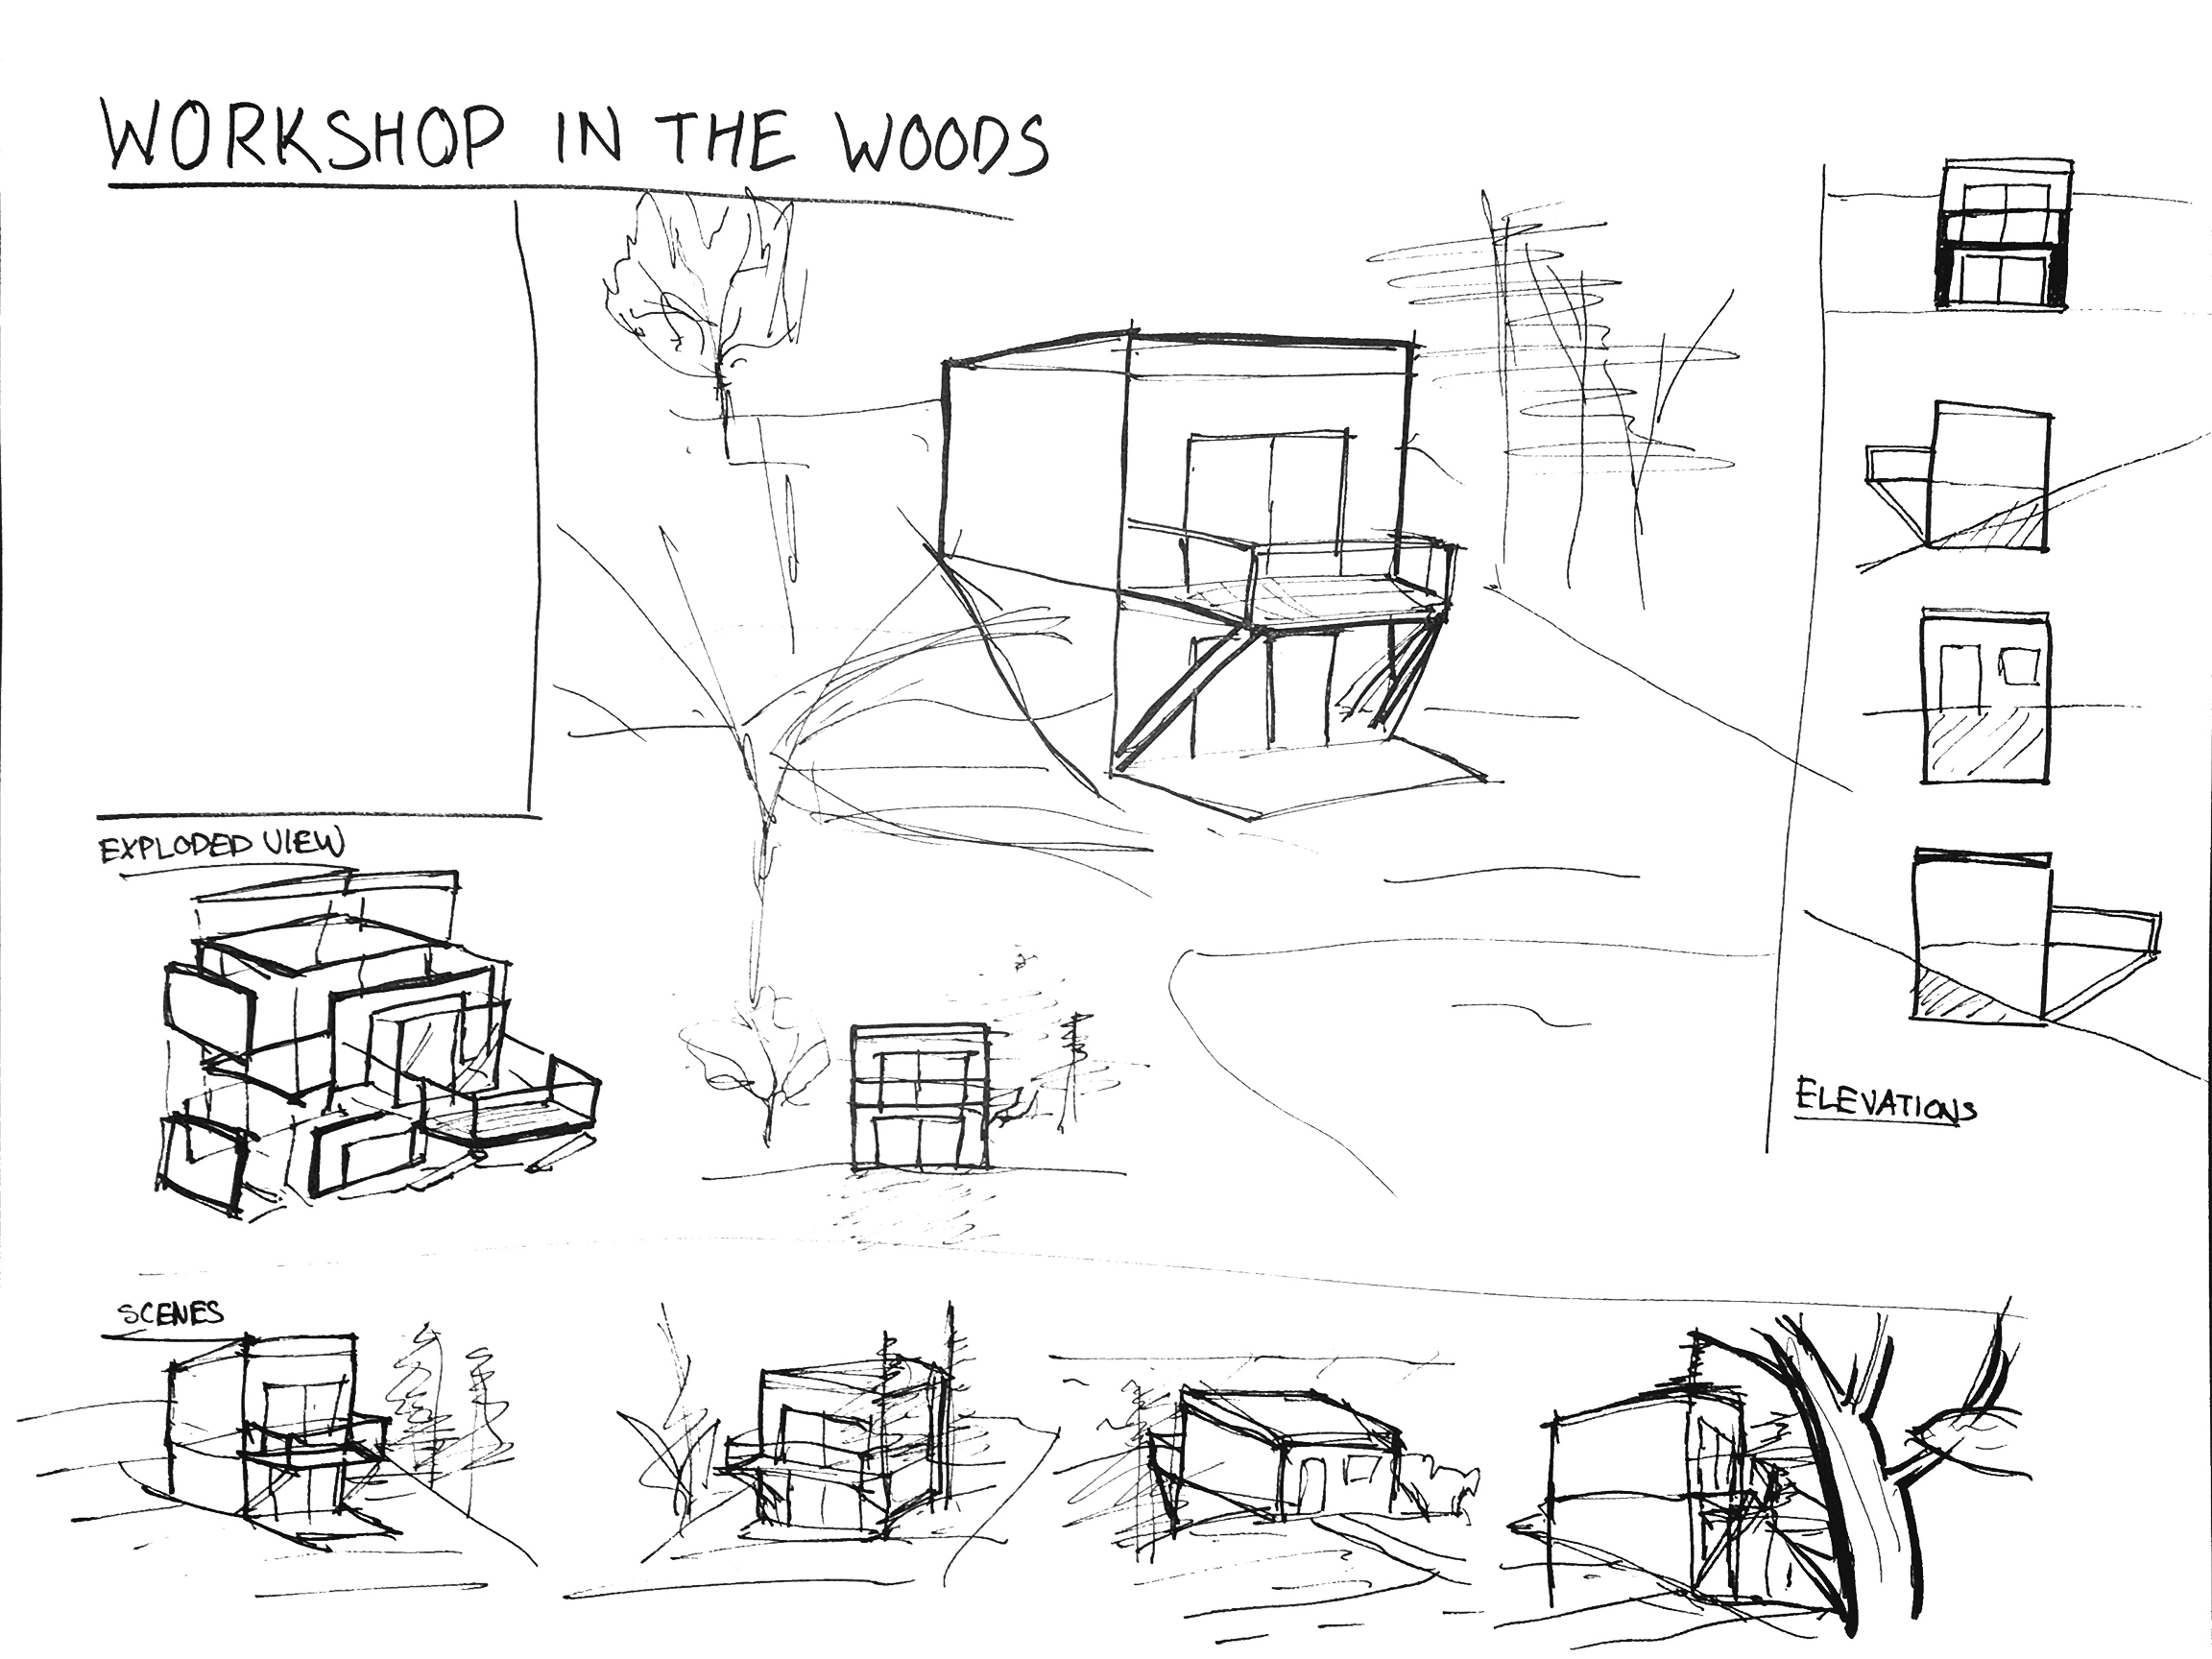 WORKSHOP IN THE WOODS
EXPLODED VIEW
ELEVATIONS
SCENES